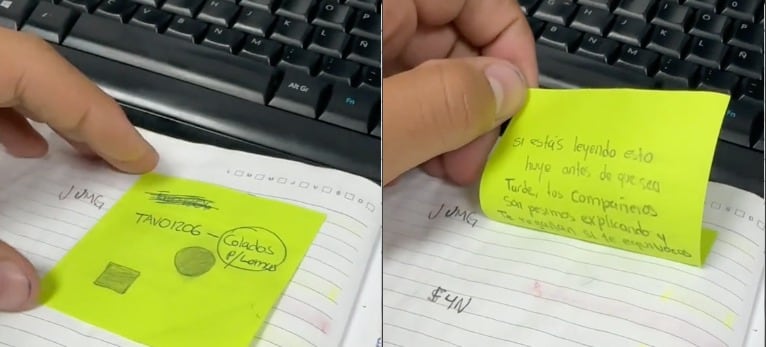 JUMG
TAVO1206 - Colados
P/Lomas
Si estás leyendo esto
huye antes de que sea
Tarde, los Compañeros
Son pesimos explicando y
Te regañan si te equivocas
JUMG
$4N
Alt Gr
Fn